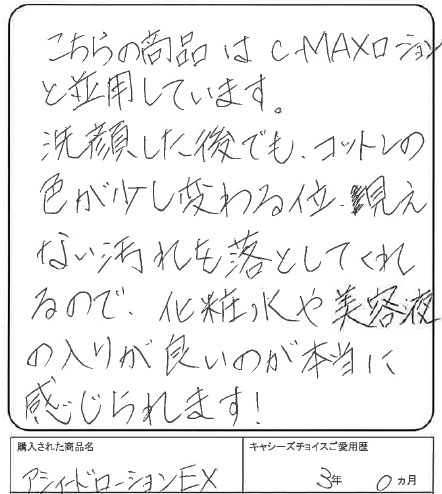 こちらの商品は C-MAXローション
と並用しています。
洗顔した後でも、コットンの
色が少し変わる位、見え
ない汚れを落としてくれ
るので、化粧水や美容液
の入りが良いのが本当に
感じられます!
購入された商品名
キャシーズチョイスご愛用歴
アシィードローションEX
3年 0ヵ月